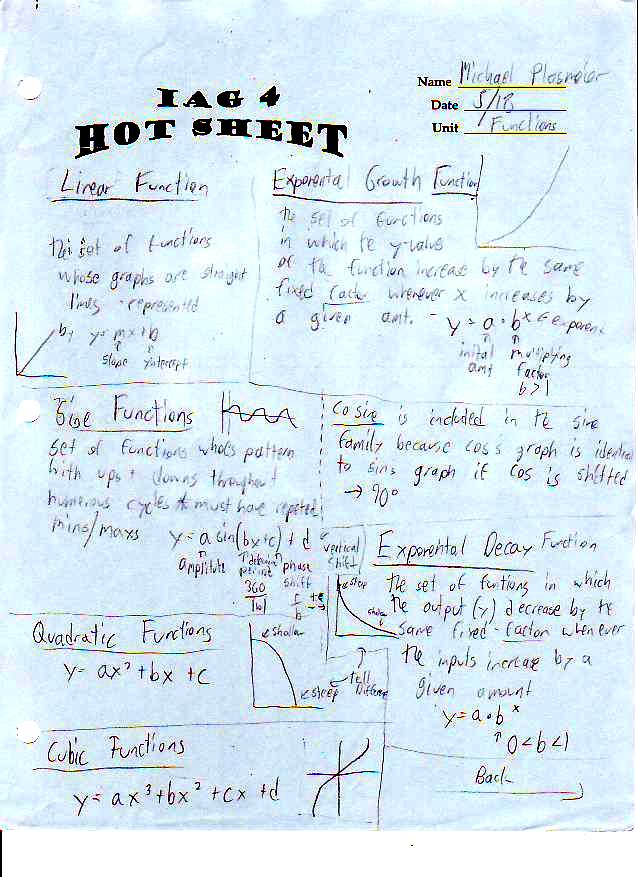 IAG 4
HOT SHEET
Name Michael Plasmeier
Date 5/18
Unit Functions
Linear Function
the set of functions
whose graphs are straight
lines - represented
by y = mx + b
slope y intercept
Exponental Growth Function
the set of functions
in which te y-value
of the function increase by the same
fixed factor whenever x increases by
a given amt. - y = a • b^x ← exponent
inital amt
multiplying factor
b > 1
Sine Functions
set of functions whos pattern
with ups + downs throughout
numerous cycles must have repeted
mins/maxs
y = a sin(bx+c) + d
amplitude
360
|b|
phase shift
c
b
vertical shift
Cosine is included in te sine
family because cos's graph is identical
to sins graph if cos is shifted
→ 90°
Exponental Decay Function
steep
shallow
the set of funtions in which
the output (y) decrease by te
same fixed - factor whenever
the inputs increase by a
given amount
y = a • b^x
↑ 0 < b < 1
Quadratic Functions
y = ax² + bx + c
← shallow
← steep
tell
Difference
Cubic Functions
y = ax³ + bx² + cx + d
Back